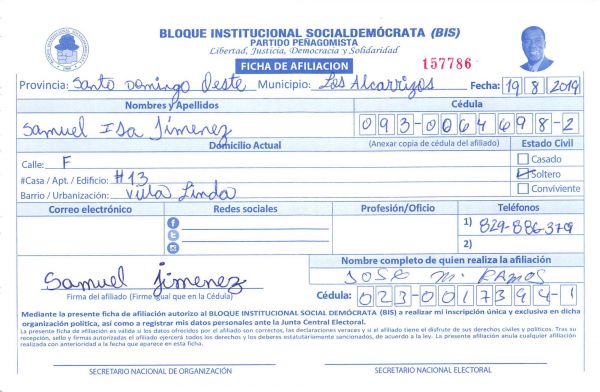 BLOQUE INSTITUCIONAL SOCIALDEMÓCRATA (BIS)
PARTIDO PEÑAGOMISTA
Libertad, Justicia, Democracia y Solidaridad
FICHA DE AFILIACION
157786
Provincia: Santo Domingo Oeste Municipio: Los Alcarrizos Fecha: 19/8/2019
Nombres y Apellidos Cédula
Samuel Isa Jimenez 093-0064698-2
Domicilio Actual (Anexar copia de cédula del afiliado) Estado Civil
Calle: F Casado
#Casa / Apt. / Edificio: #13 Soltero
Barrio / Urbanización: Villa Linda Conviviente
Correo electrónico Redes sociales Profesión/Oficio Teléfonos
1) 829-886-379
2)
Nombre completo de quien realiza la afiliación
Samuel Jimenez JOSE M. RAMOS
Firma del afiliado (Firme igual que en la Cédula) Cédula: 023-0017394-1
Mediante la presente ficha de afiliación autorizo al BLOQUE INSTITUCIONAL SOCIAL DEMÓCRATA (BIS) a realizar mi inscripción única y exclusiva en dicha
organización política, así como a registrar mis datos personales ante la Junta Central Electoral.
La presente ficha de afiliación es válida si los datos ofrecidos por el afiliado son correctos, las declaraciones veraces y si el afiliado tiene el disfrute de sus derechos civiles y políticos. Tras su
recepción, sello y firmas autorizadas el afiliado ejercerá todos los derechos y los deberes estatutariamente sancionados, de acuerdo a la ley. La presente afiliación anula cualquier afiliación
realizada con anterioridad a la fecha que aparece en esta ficha.
SECRETARIO NACIONAL DE ORGANIZACIÓN SECRETARIO NACIONAL ELECTORAL